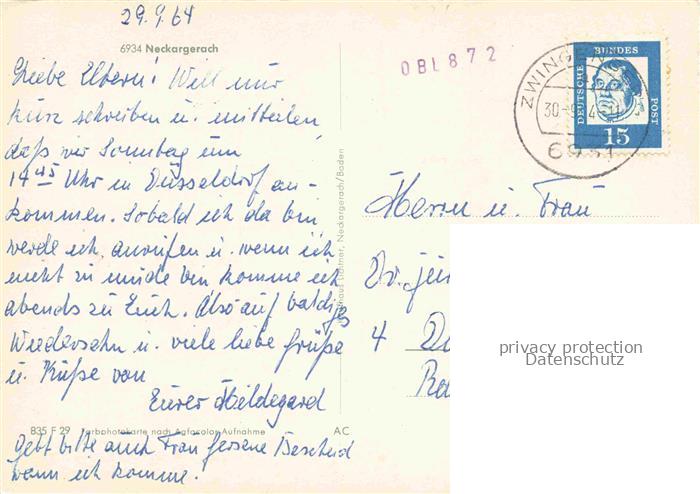 29.9.64
6934 Neckargerach
Liebe Eltern! Will nur
kurz schreiben u. mitteilen
daß wir Sonntag um
14 45 Uhr in Düsseldorf an-
kommen. Sobald ich da bin
werde ich anrufen u. wenn ich
nicht zu müde bin komme ich
abends zu Euch. Also auf baldiges
Wiedersehn u. viele liebe Grüße
u. Küße von
Eurer Hildegard
B35 F 29 Farbphotokarte nach Agfacolor-Aufnahme AC
Gebt bitte auch Frau Bescheid
wenn ich komme!
Neckargerach/Baden
OBL872
ZWINGENBERG
30.-9.64
6931
DEUTSCHE BUNDESPOST
15
Herrn u. Frau
Dr. jur
4 
privacy protection
Datenschutz